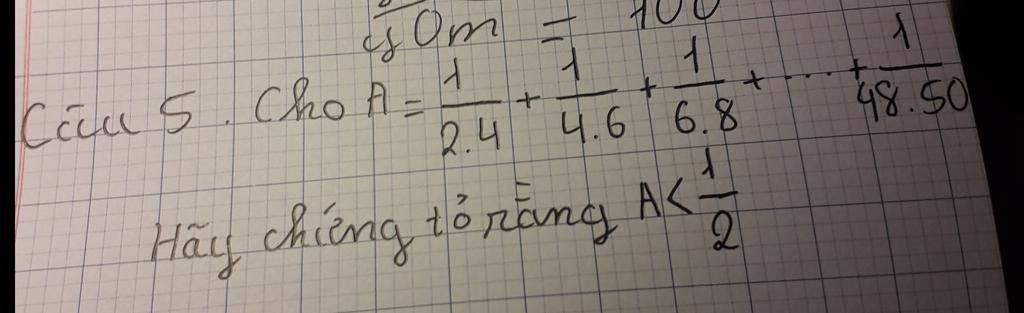 y0m = 100
Câu 5. Cho A = 1/2.4 + 1/4.6 + 1/6.8 + .... + 1/48.50
Hãy chứng tỏ rằng A < 1/2